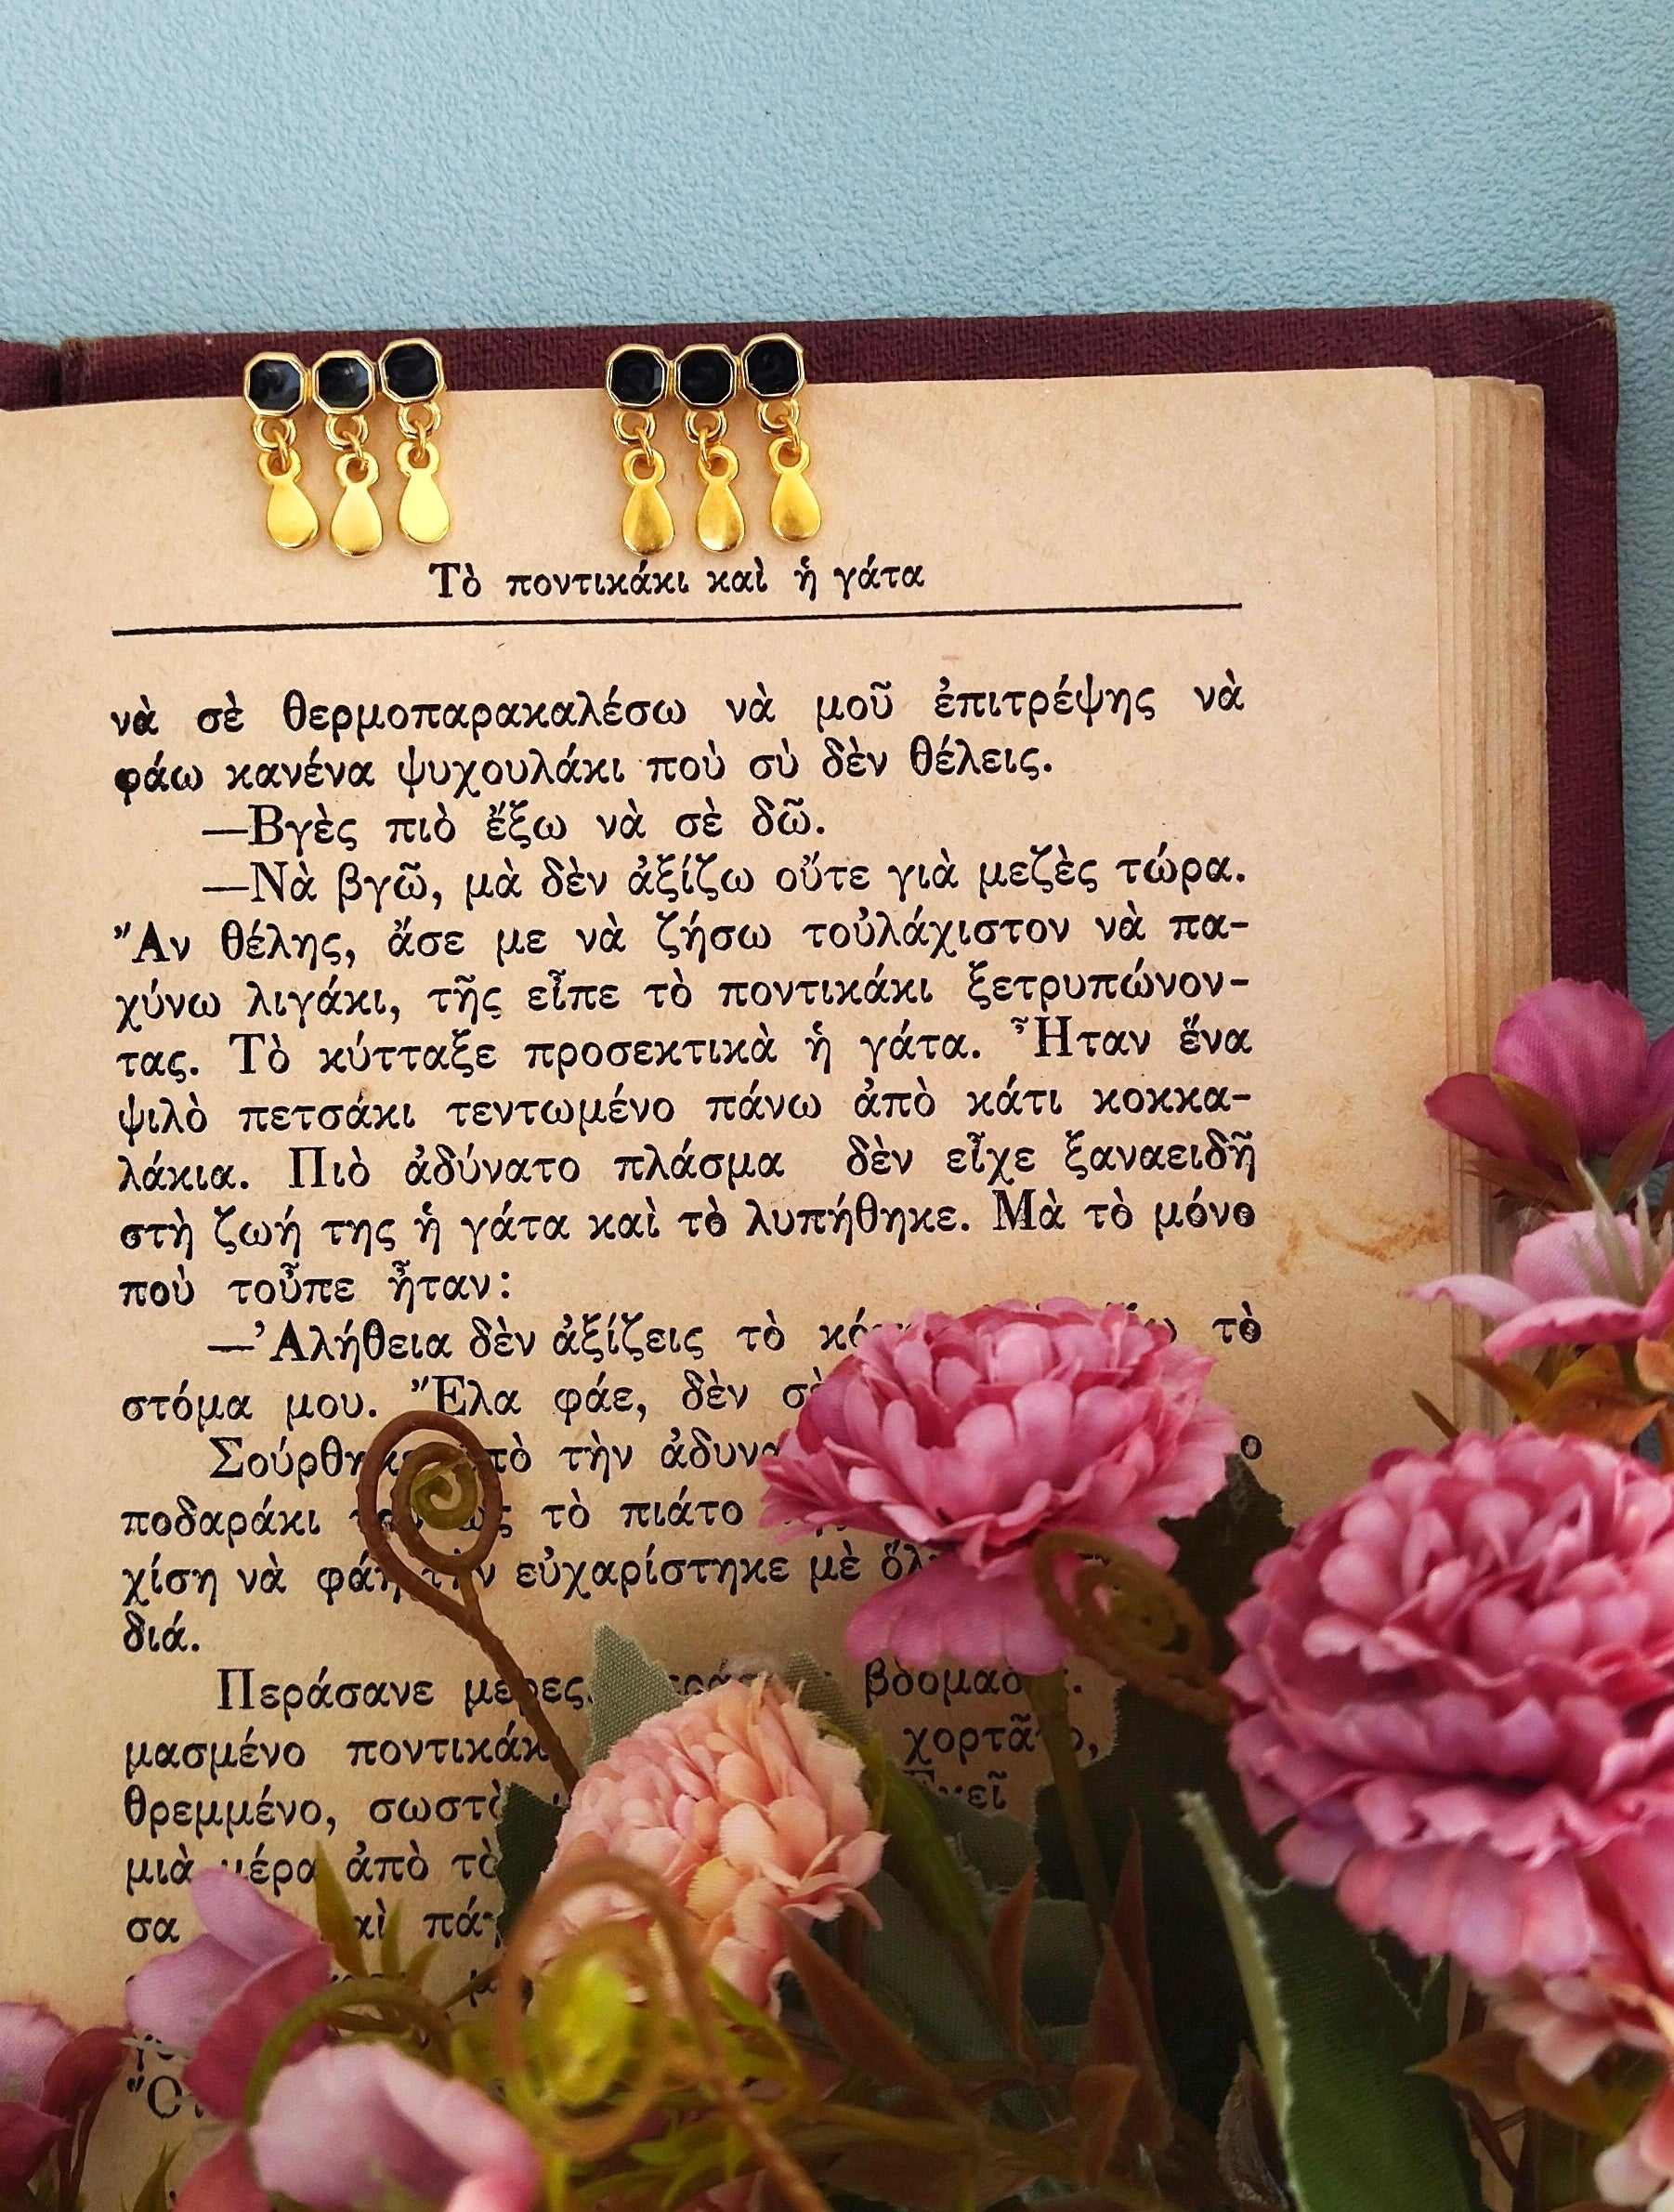 Τὸ ποντικάκι καὶ ἡ γάτα
νὰ σὲ θερμοπαρακαλέσω νὰ μοῦ ἐπιτρέψης νὰ
φάω κανένα ψυχουλάκι ποὺ σὺ δὲν θέλεις.
—Βγὲς πιὸ ἔξω νὰ σὲ δῶ.
—Νὰ βγῶ, μὰ δὲν ἀξίζω οὔτε γιὰ μεζὲς τώρα.
Ἂν θέλης, ἄσε με νὰ ζήσω τοὐλάχιστον νὰ πα-
χύνω λιγάκι, τῆς εἶπε τὸ ποντικάκι ξετρυπώνον-
τας. Τὸ κύτταξε προσεκτικὰ ἡ γάτα. Ἦταν ἕνα
ψιλὸ πετσάκι τεντωμένο πάνω ἀπὸ κάτι κοκκα-
λάκια. Πιὸ ἀδύνατο πλάσμα δὲν εἶχε ξαναειδῆ
στὴ ζωή της ἡ γάτα καὶ τὸ λυπήθηκε. Μὰ τὸ μόνο
ποὺ τοὖπε ἦταν:
—Ἀλήθεια δὲν ἀξίζεις τὸ τὸ
στόμα μου. Ἔλα φάε, δὲν
τὴν
ποδαράκι τὸ πιάτο
χίση νὰ εὐχαρίστηκε μὲ
διά.
Περάσανε
μασμένο
θρεμμένο,
μιὰ ἀπὸ
σα